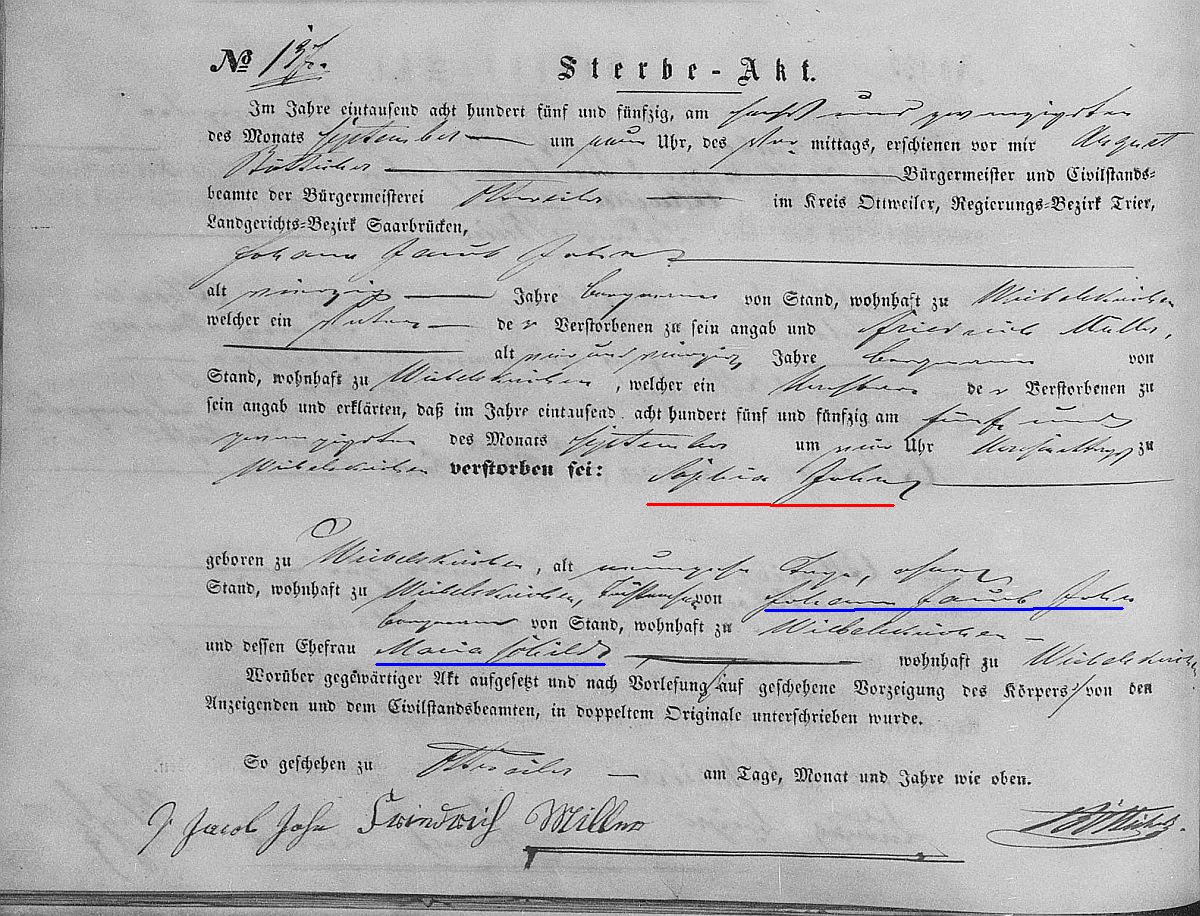 No 137.
Sterbe-Akt.
Im Jahre eintausend acht hundert fünf und fünfzig, am sechs und zwanzigsten
des Monats September um neun Uhr, des Vor mittags, erschienen vor mir August
Bürgermeister und Civilstands-
beamte der Bürgermeisterei Ottweiler im Kreis Ottweiler, Regierungs-Bezirk Trier,
Landgerichts-Bezirk Saarbrücken,
Johann Jacob John
alt vierzig Jahre Bergmann von Stand, wohnhaft zu Wiebelskirchen
welcher ein Vater de r Verstorbenen zu sein angab und Friedrich Müller,
alt und vierzig Jahre Bergmann von
Stand, wohnhaft zu Wiebelskirchen, welcher ein Nachbar de r Verstorbenen zu
sein angab und erklärten, daß im Jahre eintausend acht hundert fünf und fünfzig am fünf und
zwanzigsten des Monats September um Uhr Nachmittags zu
Wiebelskirchen verstorben sei: Sophia John
geboren zu Wiebelskirchen, alt Tage, ohne
Stand, wohnhaft zu Wiebelskirchen, Tochter von Johann Jacob John
Bergmann von Stand, wohnhaft zu Wiebelskirchen
und dessen Ehefrau Maria Schild wohnhaft zu Wiebelskirchen
Worüber gegewärtiger Akt aufgesetzt und nach Vorlesung auf geschehene Vorzeigung des Körpers von den
Anzeigenden und dem Civilstandsbeamten, in doppeltem Originale unterschrieben wurde.
So geschehen zu Ottweiler am Tage, Monat und Jahre wie oben.
J Jacob John Friedrich Müller